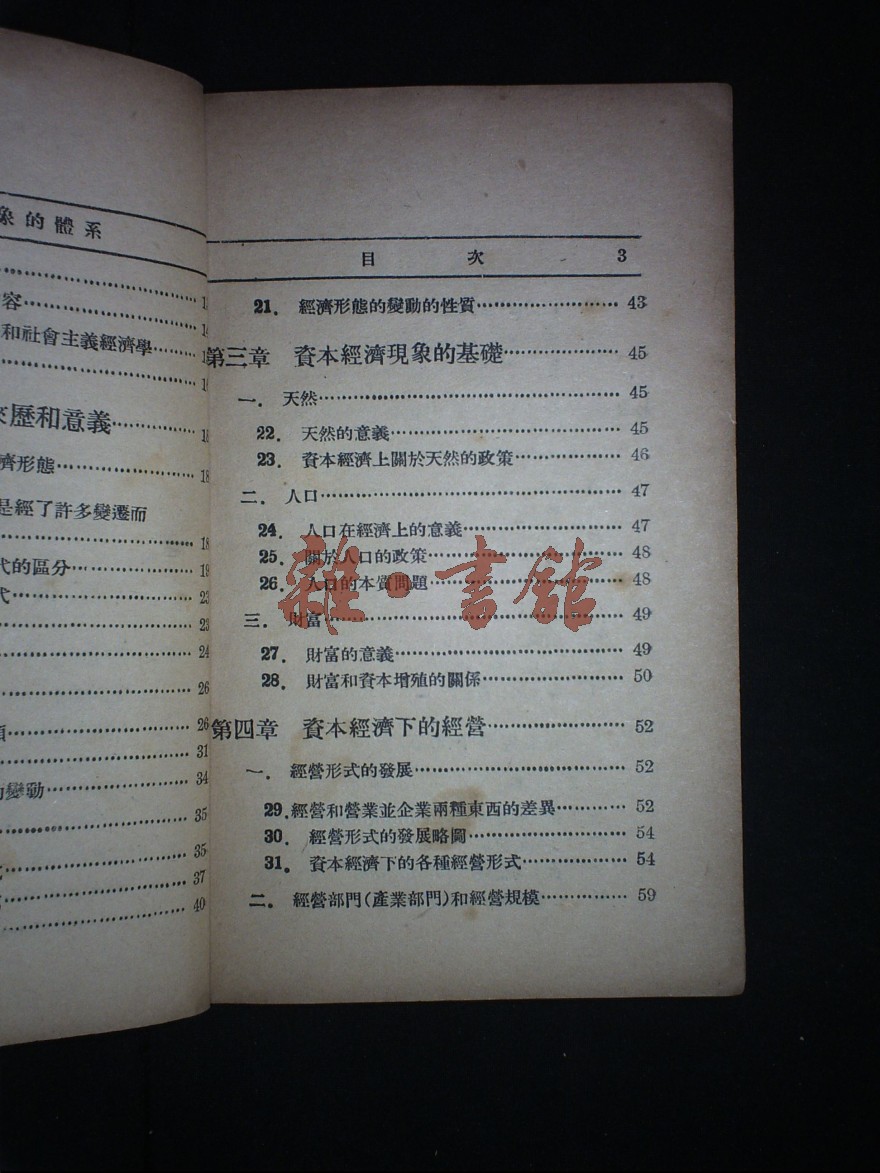 象的體系
13
容 14
和社會主義經濟學
歷和意義 18
濟形態 18
是經了許多變遷而
18
代的區分 19
代 23
23
24
26
26
31
的變動 34
35
35
37
40
目 次 3
21. 經濟形態的變動的性質 43
第三章 資本經濟現象的基礎 45
一. 天然 45
22. 天然的意義 45
23. 資本經濟上關於天然的政策 46
二. 人口 47
24. 人口在經濟上的意義 47
25. 關於人口的政策 48
26. 人口的本質問題 48
三. 財富 49
27. 財富的意義 49
28. 財富和資本增殖的關係 50
第四章 資本經濟下的經營 52
一. 經營形式的發展 52
29. 經營和營業並企業兩種東西的差異 52
30. 經營形式的發展略圖 54
31. 資本經濟下的各種經營形式 54
二. 經營部門(產業部門)和經營規模 59
雜·書館